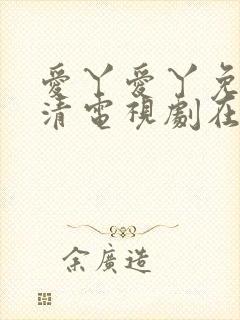 愛丫愛丫免
清電視劇在
余廣造